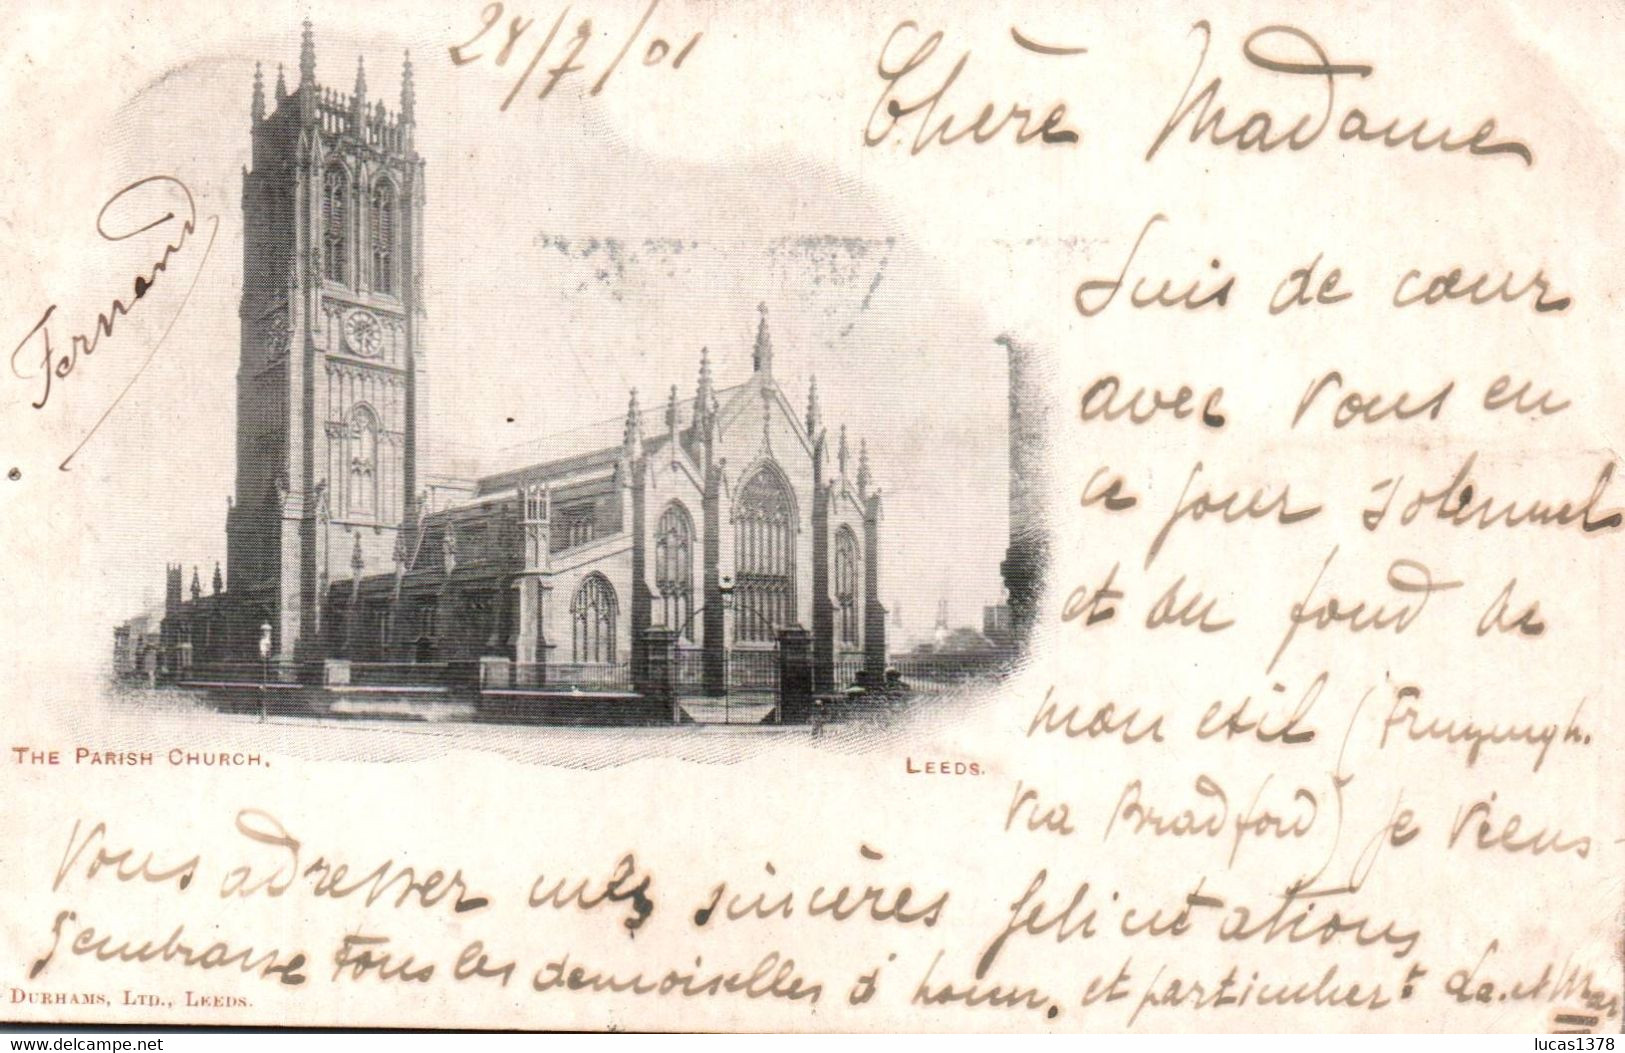 28/7/01
Chère Madame
Fernand
Suis de cœur
avec vous en
ce jour solennel
et du fond de
mon exil (
via Bradford) je viens
THE PARISH CHURCH,
LEEDS.
vous adresser mes sincères felicitations
J'embrasse tous les demoiselles d'honn. et particulier^t
DURHAMS, LTD., LEEDS.
www.delcampe.net
lucas1378